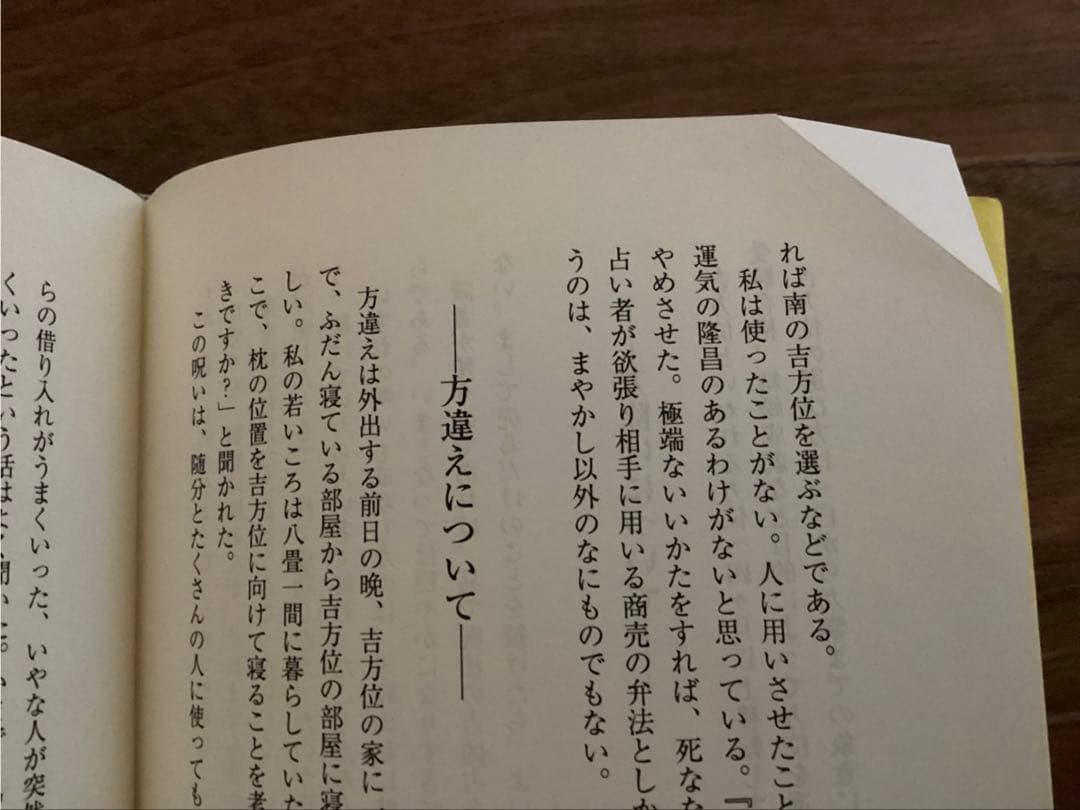 れば南の吉方位を選ぶなどである。
私は使ったことがない。人に用いさせたこと
運気の隆昌のあるわけがないと思っている。『
やめさせた。極端ないいかたをすれば、死なな
占い者が欲張り相手に用いる商売の弁法としか
うのは、まやかし以外のなにものでもない。
――方違えについて――
方違えは外出する前日の晩、吉方位の家に、
で、ふだん寝ている部屋から吉方位の部屋に寝
しい。私の若いころは八畳一間に暮らしていた
こで、枕の位置を吉方位に向けて寝ることを考
きですか?」と聞かれた。
この呪いは、随分とたくさんの人に使っても
らの借り入れがうまくいった、いやな人が突然
くいったという話はよく聞いた。